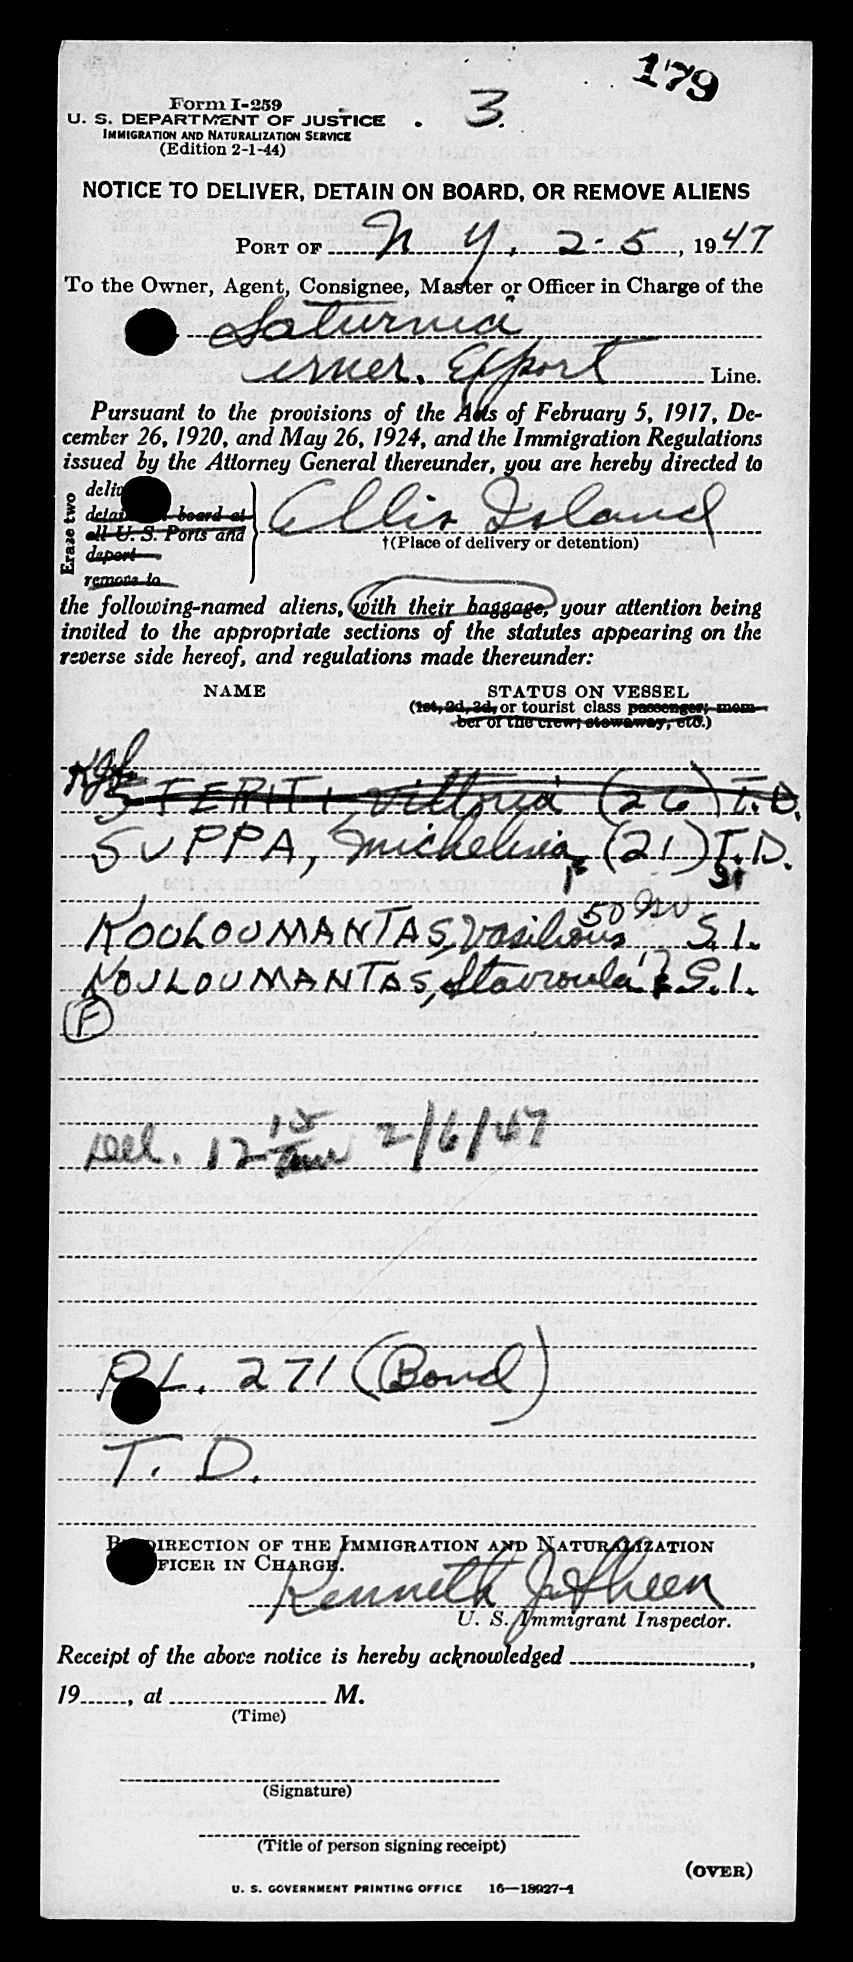 179
Form I-259
3.
U. S. DEPARTMENT OF JUSTICE
IMMIGRATION AND NATURALIZATION SERVICE
(Edition 2-1-44)
NOTICE TO DELIVER, DETAIN ON BOARD, OR REMOVE ALIENS
PORT OF N. Y., 2-5, 1947
To the Owner, Agent, Consignee, Master or Officer in Charge of the
Saturnia
Amer. Export Line.
Pursuant to the provisions of the Acts of February 5, 1917, De-
cember 26, 1920, and May 26, 1924, and the Immigration Regulations
issued by the Attorney General thereunder, you are hereby directed to
Erase two
deliv
detai board at
all U. S. Ports and
deport
remove to
Ellis Island
†(Place of delivery or detention)
the following-named aliens, with their baggage, your attention being
invited to the appropriate sections of the statutes appearing on the
reverse side hereof, and regulations made thereunder:
NAME STATUS ON VESSEL
(1st, 2d, 3d, or tourist class passenger; mem-
ber of the crew; stowaway, etc.)
STERITI, Vittoria (26) T.D.
SUPPA, Michelina, (21) T.D.
KOULOUMANTAS, Vasilious 50 S.I.
KOULOUMANTAS, Stavroula 17 S.I.
F
Del. 12 15 am 2/6/47
P.L. 271 (Bond)
T. D.
DIRECTION OF THE IMMIGRATION AND NATURALIZATION
FICER IN CHARGE.
Kenneth J. Sheen
U. S. Immigrant Inspector.
Receipt of the above notice is hereby acknowledged ,
19 , at M.
(Time)
(Signature)
(Title of person signing receipt)
(OVER)
U. S. GOVERNMENT PRINTING OFFICE 16—18927-1